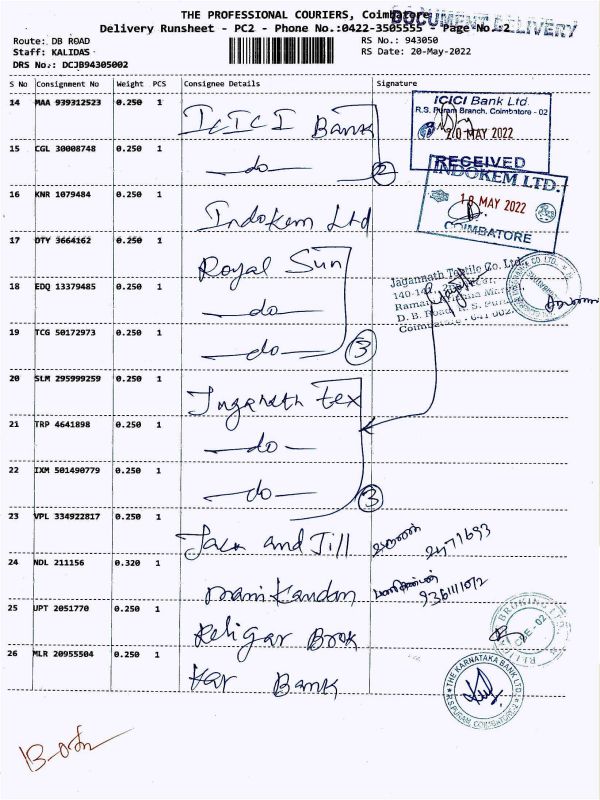 THE PROFESSIONAL COURIERS, Coimbatore
DOCUMENT DELIVERY
Delivery Runsheet - PC2 - Phone No.:0422-3505555 - Page No.:2
Route: DB ROAD
RS No.: 943050
Staff: KALIDAS
RS Date: 20-May-2022
DRS No.: DCJB94305002
S No Consignment No Weight PCS Consignee Details Signature
14 MAA 939312523 0.250 1 ICICI Bank
ICICI Bank Ltd.
R.S. Puram Branch, Coimbatore - 02
20 MAY 2022
RECEIVED
15 CGL 30008748 0.250 1 do
2
16 KNR 1079484 0.250 1 Indokem Ltd
INDOKEM LTD.
18 MAY 2022
COIMBATORE
17 DTY 3664162 0.250 1 Royal Sun
18 EDQ 13379485 0.250 1 do
Jagannath Textile Co. Ltd.
D. B. Road, R. S. Puram
19 TCG 50172973 0.250 1 do
3
20 SLM 295999259 0.250 1 Juganath tex
21 TRP 4641898 0.250 1 do
22 IXM 501490779 0.250 1 do
3
23 VPL 334922817 0.250 1 Jack and Jill
24 NDL 211156 0.320 1 manikandan
25 UPT 2051770 0.250 1 Religar Brok
26 MLR 20955504 0.250 1 Kar Bank
THE KARNATAKA BANK LTD.
R.S. PURAM, COIMBATORE-2